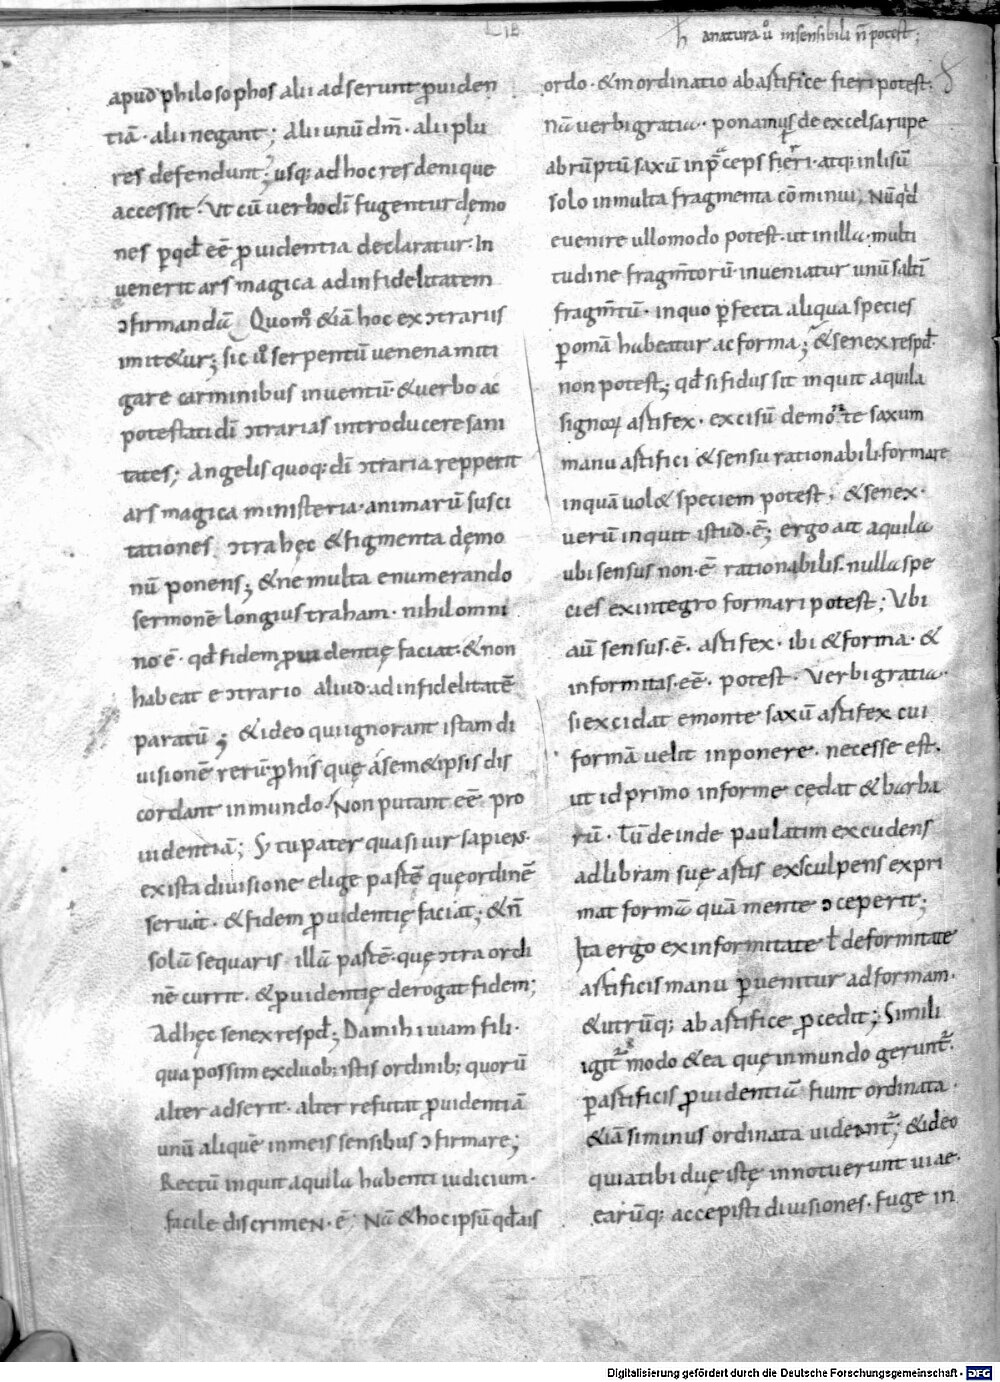 LIB
h anatura uͦ insensibili n̄ potest;
apud philosophos alii adserunt ꝓuiden
tiā· alii negant; Alii unū dm̄· alii plu
res defendunt; usq; adhoc res denique
accessit· Ut cū uerbo dī fugentur dęmo
nes ꝑqd̄ eē ꝓuidentia declaratur· In
uenerit ars magica adinfidelitatem
ↄfirmandā; Quom̊ &iā hoc ex ↄtrariis
imit&ur; sic uͦ serpentū uenena miti
gare carminibus inuentū· & uerbo ac
potestati dī ↄtrarias introducere sani
tates; Angelis quoq; dī ↄtraria repperit
ars magica ministeria· animarū susci
tationes ↄtra hęc & figmenta dęmo
nū ponens; & ne multa enumerando
sermonē longius traham· nihil omni
no ē· qd̄ fidem ꝓuidentię faciat· & non
habeat e ↄtrario aliud ad infidelitatē
paratū; & ideo qui ignorant istam di
uisionē rerū ꝓ his quę a sem&ipsis dis
cordant in mundo· Non putant eē pro
uidentiā; S; tu pater quasi uir sapiens
ex ista diuisione elige partē quę ordinē
seruat· & fidem ꝓuidentię faciat; & n̄
solū sequaris illā partē· quę ↄtra ordi
nē currit· & ꝓuidentię derogat fidem;
Ad hęc senex respd̄; Da mihi uiam fili·
qua possim ex duob; istis ordinib; quorū
alter adserit· alter refutat ꝓuidentiā
unū aliquē in meis sensibus ↄfirmare;
Rectū inquit aquila habenti iudicium·
facile discrimen· ē; Nā & hoc ipsū qd̄ ais
ordo· & inordinatio ab artifice fieri potest·
nā uerbi gratia· ponamus de excelsa rupe
abrūptū saxū in p̄ceps fieri· atq; inlisū
solo in multa fragmenta cōminui; Nūqd̄
euenire ullomodo potest· ut in illa multi
tudine fragm̄torū inueniatur unū saltī
fragm̄tū· in quo ꝑfecta aliqua species
ꝑomā habeatur ac forma; & senex respd̄
non potest; qd̄ si fidus sit inquit aquila
signoꝝ artifex· excisū de monte saxum
manu artifici & sensu rationabili formare
inquā uol& speciem potest; & senex·
uerū inquit istud· ē; ergo ait aquila
ubi sensus non· ē rationabilis· nulla spe
cies ex integro formari potest; Ubi
aū sensus· ē· artifex· ibi & forma· &
informitas· eē· potest· Verbi gratia·
si excidat e monte saxū artifex cui
formā uelit inponere· necesse est·
ut id primo informe cędat & barba
rū· Tū deinde paulatim excudens
ad libram suę artis exsculpens expri
mat formā quā mente ↄceperit;
Ita ergo ex informitate ł deformitate
artificis manu ꝑuenitur ad formam·
& utrūq; ab artifice ꝓcedit; Simili
igit̄ modo & ea quę in mundo gerunt̄·
ꝑ artificis ꝓuidentiā fiunt ordinata·
& iā si minus ordinata uideant̄; & ideo
quia tibi duę istę innotuerunt uiae·
earūq; accepisti diuisiones· fuge in
Digitalisierung gefördert durch die Deutsche Forschungsgemeinschaft - DFG